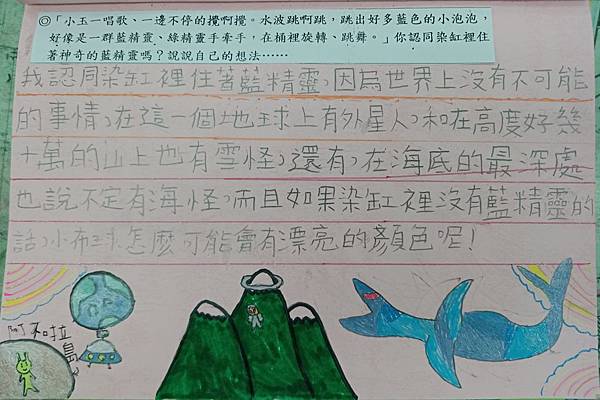 ◎「小玉一唱歌、一邊不停的攪啊攪。水波跳啊跳，跳出好多藍色的小泡泡，
好像是一群藍精靈、綠精靈手牽手，在桶裡旋轉、跳舞。」你認同染缸裡住
著神奇的藍精靈嗎？說說自己的想法……
我認同染缸裡住著藍精靈，因為世界上沒有不可能
的事情，在這一個地球上有外星人，和在高度好幾
十萬的山上也有雪怪，還有，在海底的最深處
也說不定有海怪，而且如果染缸裡沒有藍精靈的
話，小布球怎麼可能會有漂亮的顏色呢！
阿不拉島